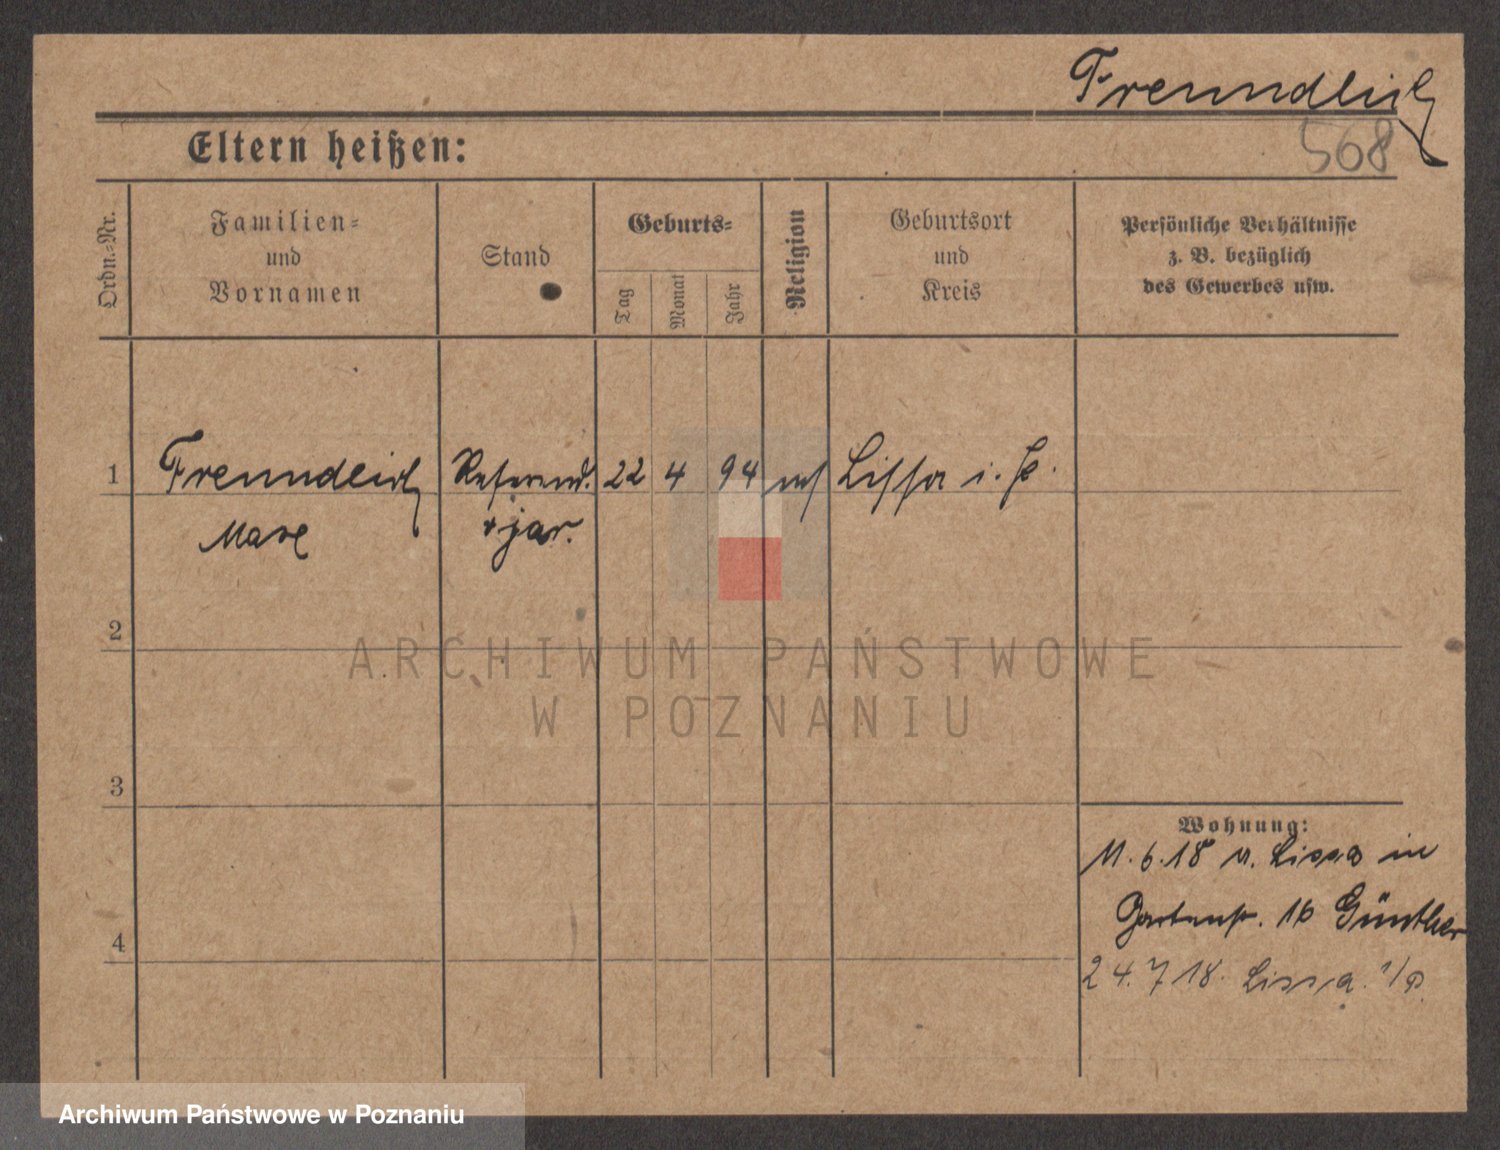 Freundlich
568
Eltern heißen:
Ordn.-Nr.
Familien-
und
Vornamen
Stand
Geburts-
Tag
Monat
Jahr
Religion
Geburtsort
und
Kreis
Persönliche Verhältnisse
z. B. bezüglich
des Gewerbes usw.
1
Freundlich
Referend.
22
4
94
Lissa i. P.
Max
2
ARCHIWUM PAŃSTWOWE
W POZNANIU
3
Wohnung:
11.6.18 v. Lissa in
Gartenstr. 16 Günther
4
24.7.18. Lissa. i/P.
Archiwum Państwowe w Poznaniu